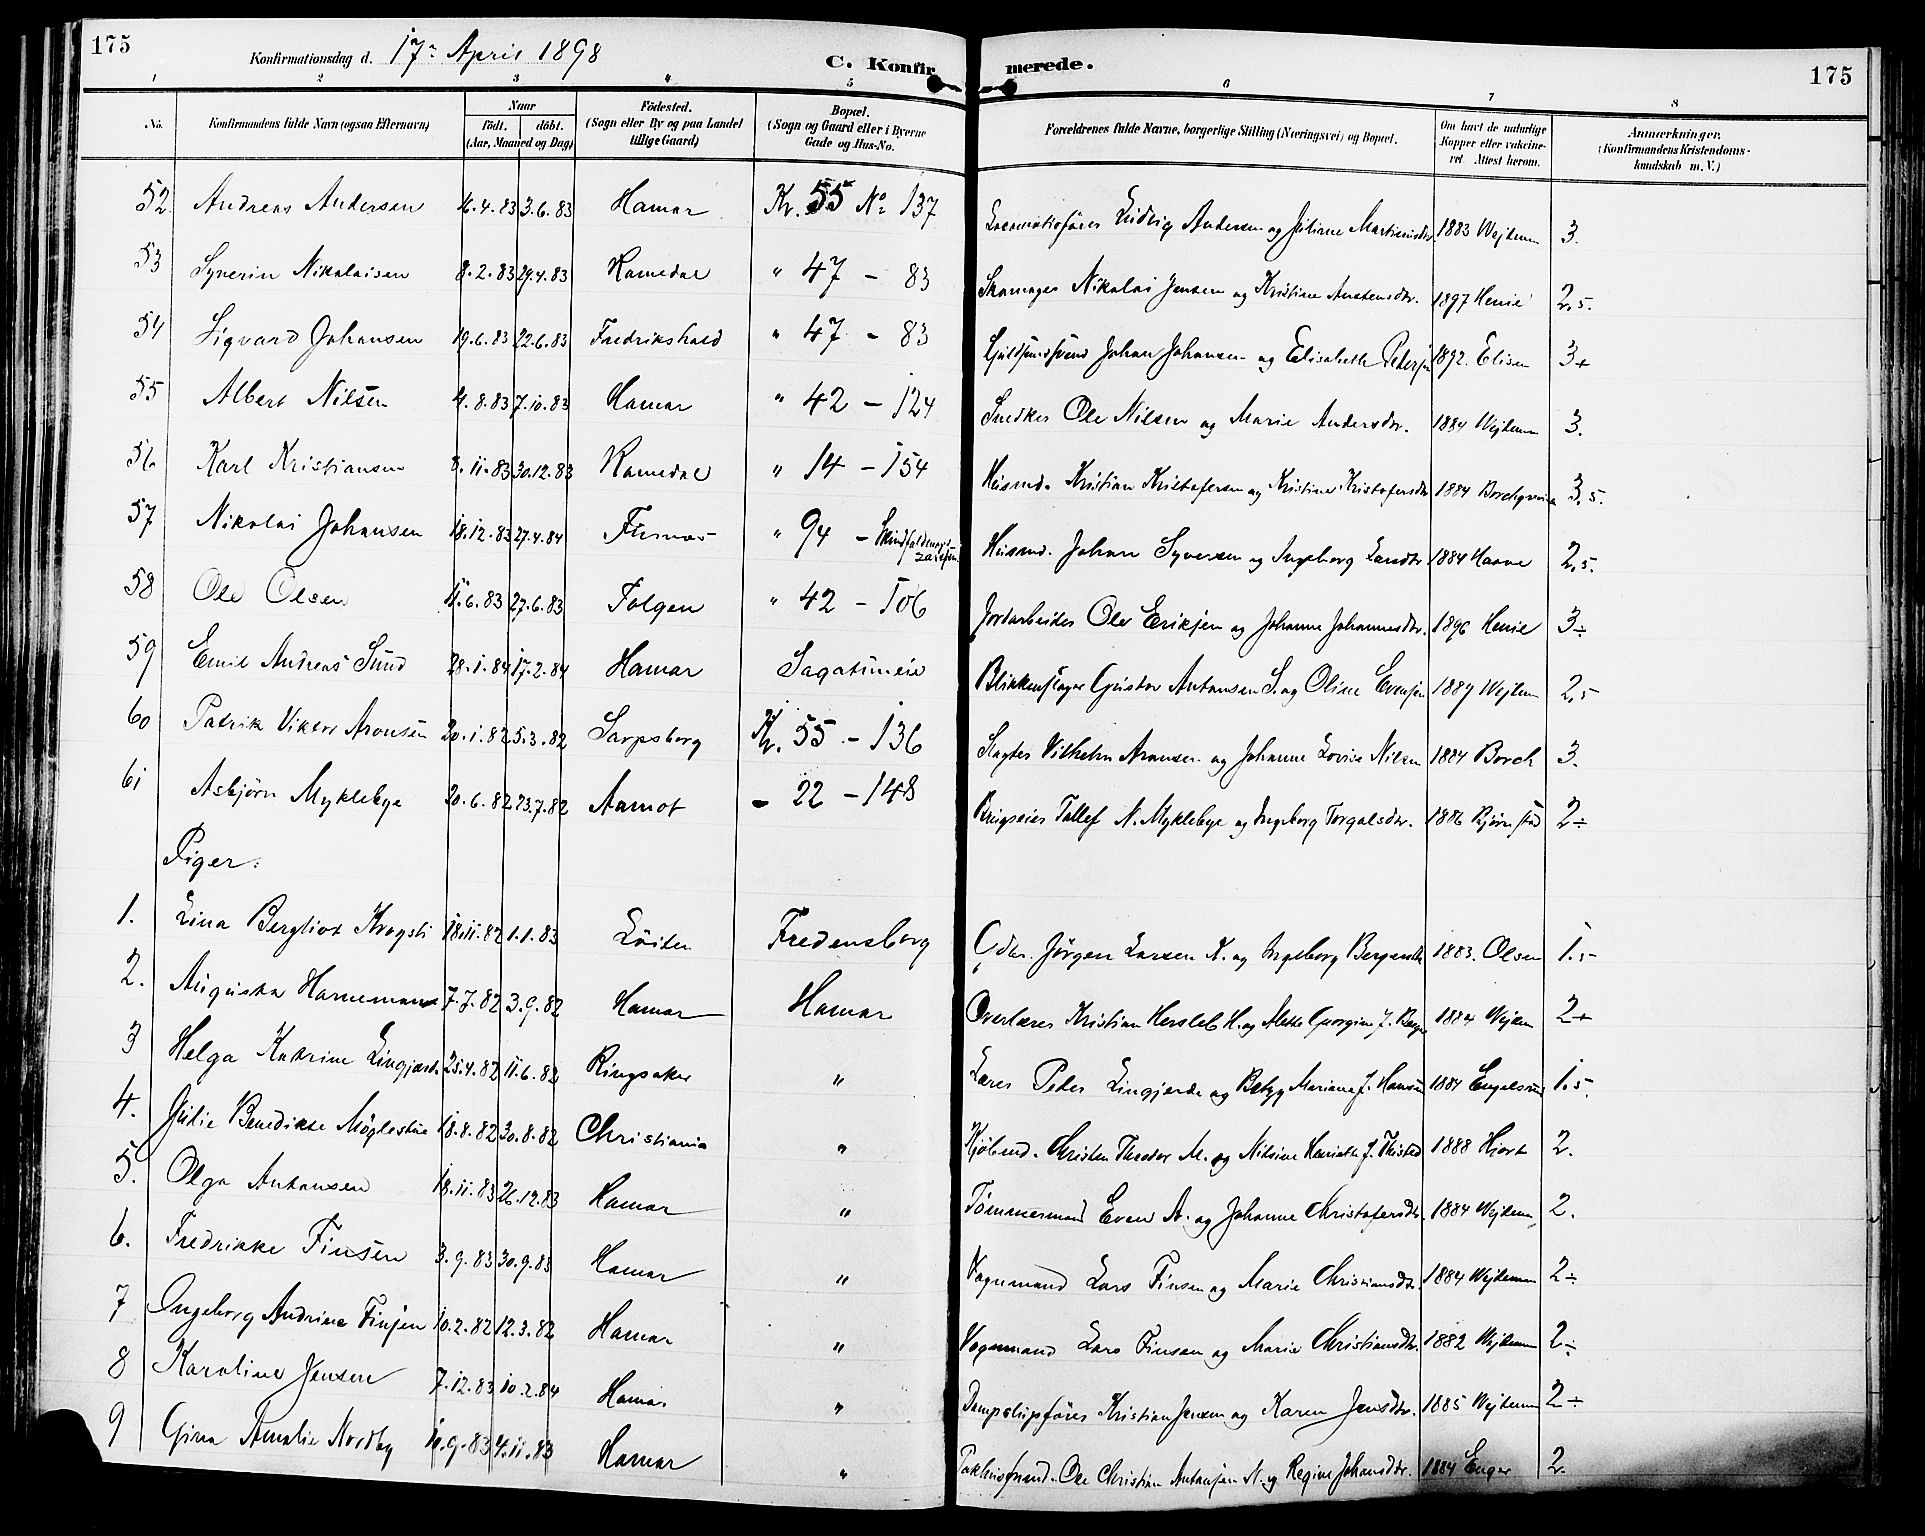 175
Konfirmationsdag d. 17de April 1898
C. Konfirmerede.
175
1 2 3 4 5 6 7 8
No. Konfirmandens fulde Navn (ogsaa Efternavn) Naar födt. döbt. (Aar, Maaned og Dag) Födested. (Sogn eller By og paa Landet tillige Gaard) Bopæl. (Sogn og Gaard eller i Byerne Gade og Hus-No. Forældrenes fulde Navne, borgerlige Stilling (Næringsvei) og Bopæl. Om havt de naturlige Kopper eller vakcineret. Attest herom. Anmærkninger. (Konfirmandens Kristendomskundskab m. V.)
52. Andreas Andersen 16.4.83 3.6.83 Hamar Kv. 55 No 137 Locomotivfører Ludvig Andersen og Juliane Martinusdtr. 1883 Wejdem 3.
53 Syverin Nikolaisen 8.2.83 29.4.83 Romedal " 47 - 83 Skomager Nikolai Jensen og Kristine Austensdtr. 1897 Henie 2,5.
54 Sigvard Johansen 19.6.83 22.6.83 Fredrikshald " 47 - 83 Johan Johansen og Elisabeth Petersen 1892. Elisen 3+
55 Albert Nilsen 4.8.83 7.10.83 Hamar " 42 - 124 Snedker Ole Nilsen og Marie Andersdtr. 1884 Wejdem 3.
56 Karl Kristiansen 8.11.83 30.12.83 Romedal " 14 - 154 Husmd. Kristian Kristofersen og Kristine Kristofersdtr 1884 Borchgrevink 3,5.
57 Nikolai Johansen 18.12.83 27.4.84 Furnæs " 94 - Husmd. Johan Syversen og Ingeborg Larsdtr 1884 Haave 2,5.
58 Ole Olsen 11.6.83 27.6.83 Tolgen " 42 - 106 Jordarbeider Ole Eriksen og Johanne Johannesdtr. 1896 Henie 3÷
59 Emil Andreas Sund 28.1.84 17.2.84 Hamar Sagatunveie Blikkenslager Gustav Antonsen S. og Oline Evensen 1889 Wejdem 2,5
60 Patrik Viktor Aronsen 20.1.82 5.3.82 Sarpsborg Kv. 55 - 136 Slagter Vilhelm Aronsen og Johanne Lovise Nilsen 1884 Borch 3.
61 Asbjørn Myklebye 20.6.82 23.7.82 Aamot - 22 - 148 Brugseier Tollef N. Myklebye og Ingeborg Torgalsdtr. 1886 Bjørnstad 2÷
Piger:
1. Lina Bergliot Krogsti 18.11.82 1.1.83 Löiten Fredensborg Gbr. Jørgen Larsen K. og Ingeborg 1883. Olsen 1.5
2. Augusta Hornemann 7.7.82 3.9.82 Hamar Hamar Overlærer Kristian Hersleb H. og Mette Georgine f. 1884 Wejdem 2+
3 Helga Katrine Lingjærde 25.4.82 11.6.82 Ringsaker " Lærer Peder Lingjærde og Betzy Mariane f. Hansen 1884 Engelsrud 1.5.
4. Julie Benedikte Møglestue 18.8.82 30.8.82 Christiania " Kjøbmd. Christen Theodor M. og Nilsine Henriette f. Thisted 1888 Hjort 2.
5. Olga Antonsen 18.11.83 26.12.83 Hamar " Tömmermand Even A. og Johanne Christofersdtr. 1884 Wejdem 2.
6. Fredrikke Finsen 3.9.83 30.9.83 Hamar " Vognmand Lars Finsen og Marie Christiansdtr. 1884 Wejdemann 2÷
7 Ingeborg Andrine Finsen 10.2.82 12.3.82 Hamar " Vognmand Lars Finsen og Marie Christiansdtr. 1882 Wejdemann 2÷
8 Karoline Jensen 7.12.83 10.2.84 Hamar " Dampskipsfører Kristian Jensen og Karen Jensdtr. 1885 Wejdemann 2÷
9 Gina Amalie Nordby 11.9.83 4.11.83 Hamar " Pakhusmand Ole Christian Antonsen N. og Regine Johansdtr. 1884 Enger 2.